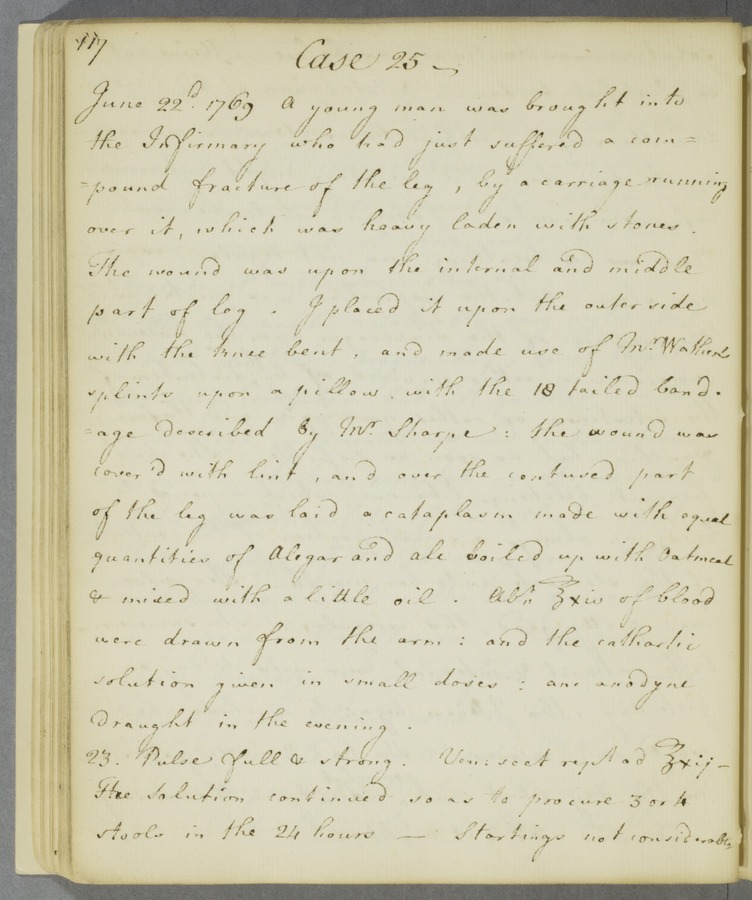 117
Case 25 —
June 22d. 1769 A young man was brought into
the Infirmary who had just suffered a com=
=pound fracture of the leg, by a carriage running
over it, which was heavy laden with stones.
The wound was upon the internal and middle
part of leg. I placed it upon the outer side
with the knee bent, and made use of Mr. Wathen's
splints upon a pillow, with the 18 tailed band-
=age described by Mr. Sharpe: the wound was
cover'd with lint, and over the contused part
of the leg was laid a cataplasm made with equal
quantities of Alegar and ale boiled up with Oatmeal
& mixed with a little oil. Abt. ℥xiv of blood
were drawn from the arm: and the cathartic
solution given in small doses: an anodyne
draught in the evening.
23. Pulse full & strong. Ven: sect rept ad ℥xij —
The Solution continued so as to procure 3 or 4
stools in the 24 hours — Startings not considerable